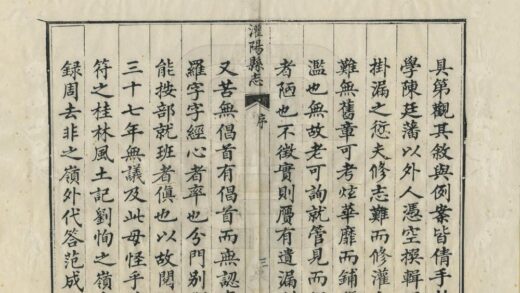 具第觀其敘與例案皆倩手
學陳廷藩以外人憑空撰輯
掛漏之愆夫修志難而修灌
難無舊章可考炫華靡而鋪
濫也無故老可詢就管見而
者陋也不徵實則贗有遺漏
灌陽縣志
序
三
又苦無倡首有倡首而無認
羅字字經心者率也分門別
能按部就班者傎也以故閱
三十七年無議及此毋怪乎
符之桂林風土記劉恂之嶺
録周去非之嶺外代答范成